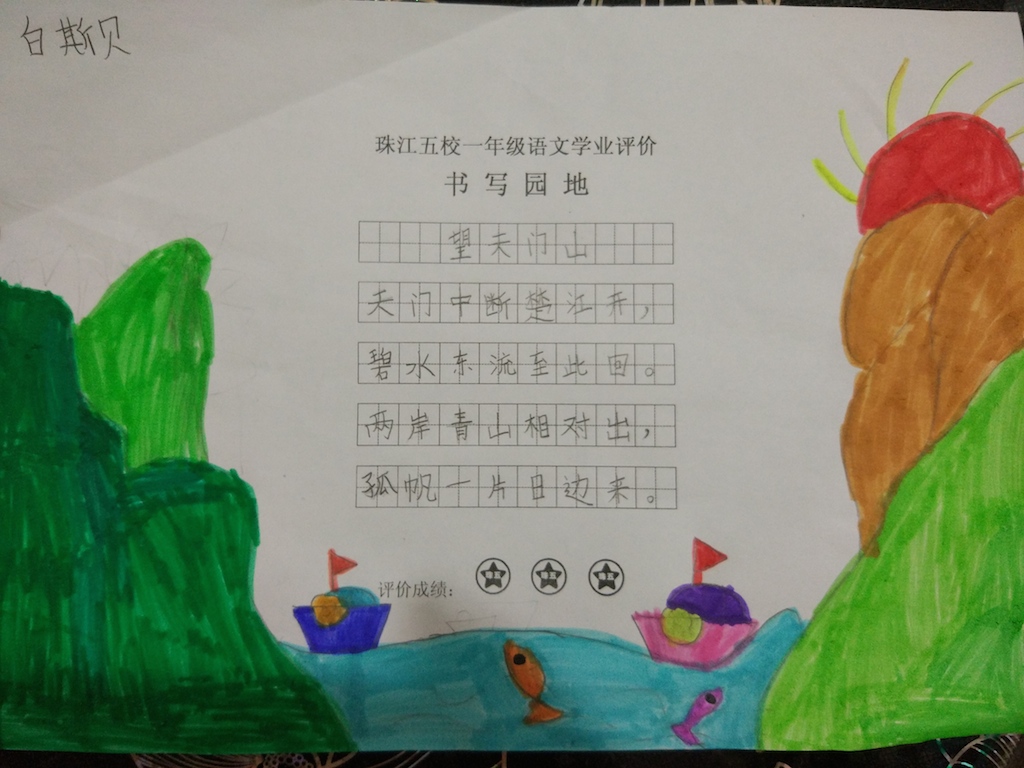 白斯贝
珠江五校一年级语文学业评价
书写园地
望天门山
天门中断楚江开，
碧水东流至此回。
两岸青山相对出，
孤帆一片日边来。
评价成绩：